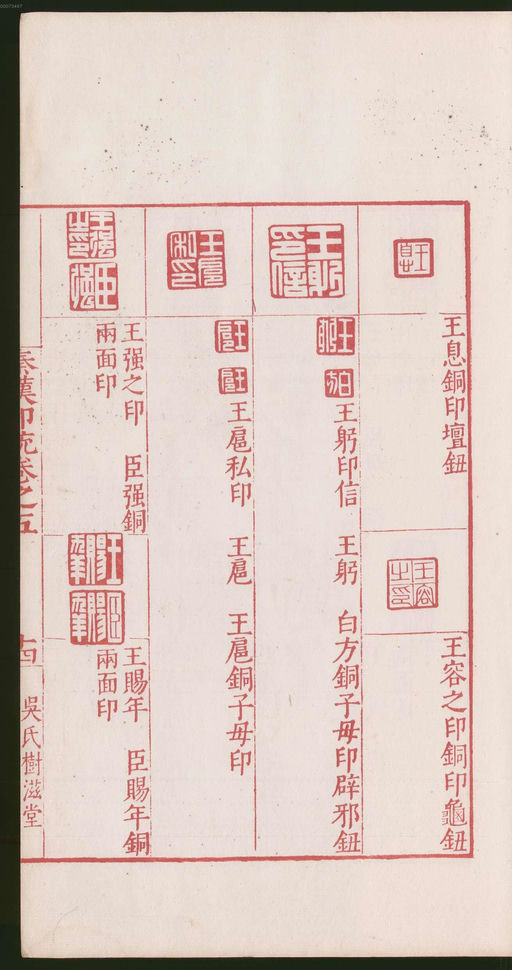 王息銅印壇鈕
王容之印銅印龜鈕
王躬印信　王躬　白方銅子母印辟邪鈕
王扈私印　王扈　王扈銅子母印
王强之印　臣强銅
兩面印
王賜年　臣賜年銅
兩面印
秦漢印統卷之五
十四
吳氏樹滋堂
00073447